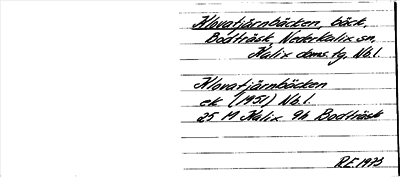 Klovatjärnbäcken, bäck,
Bodträsk, Nederkalix sn,
Kalix doms. tg, Nb. l.
Klovatjärnbäcken
ek (1951) Nb. l.
25 M Kalix 9h Bodträsk
R.E. 1973